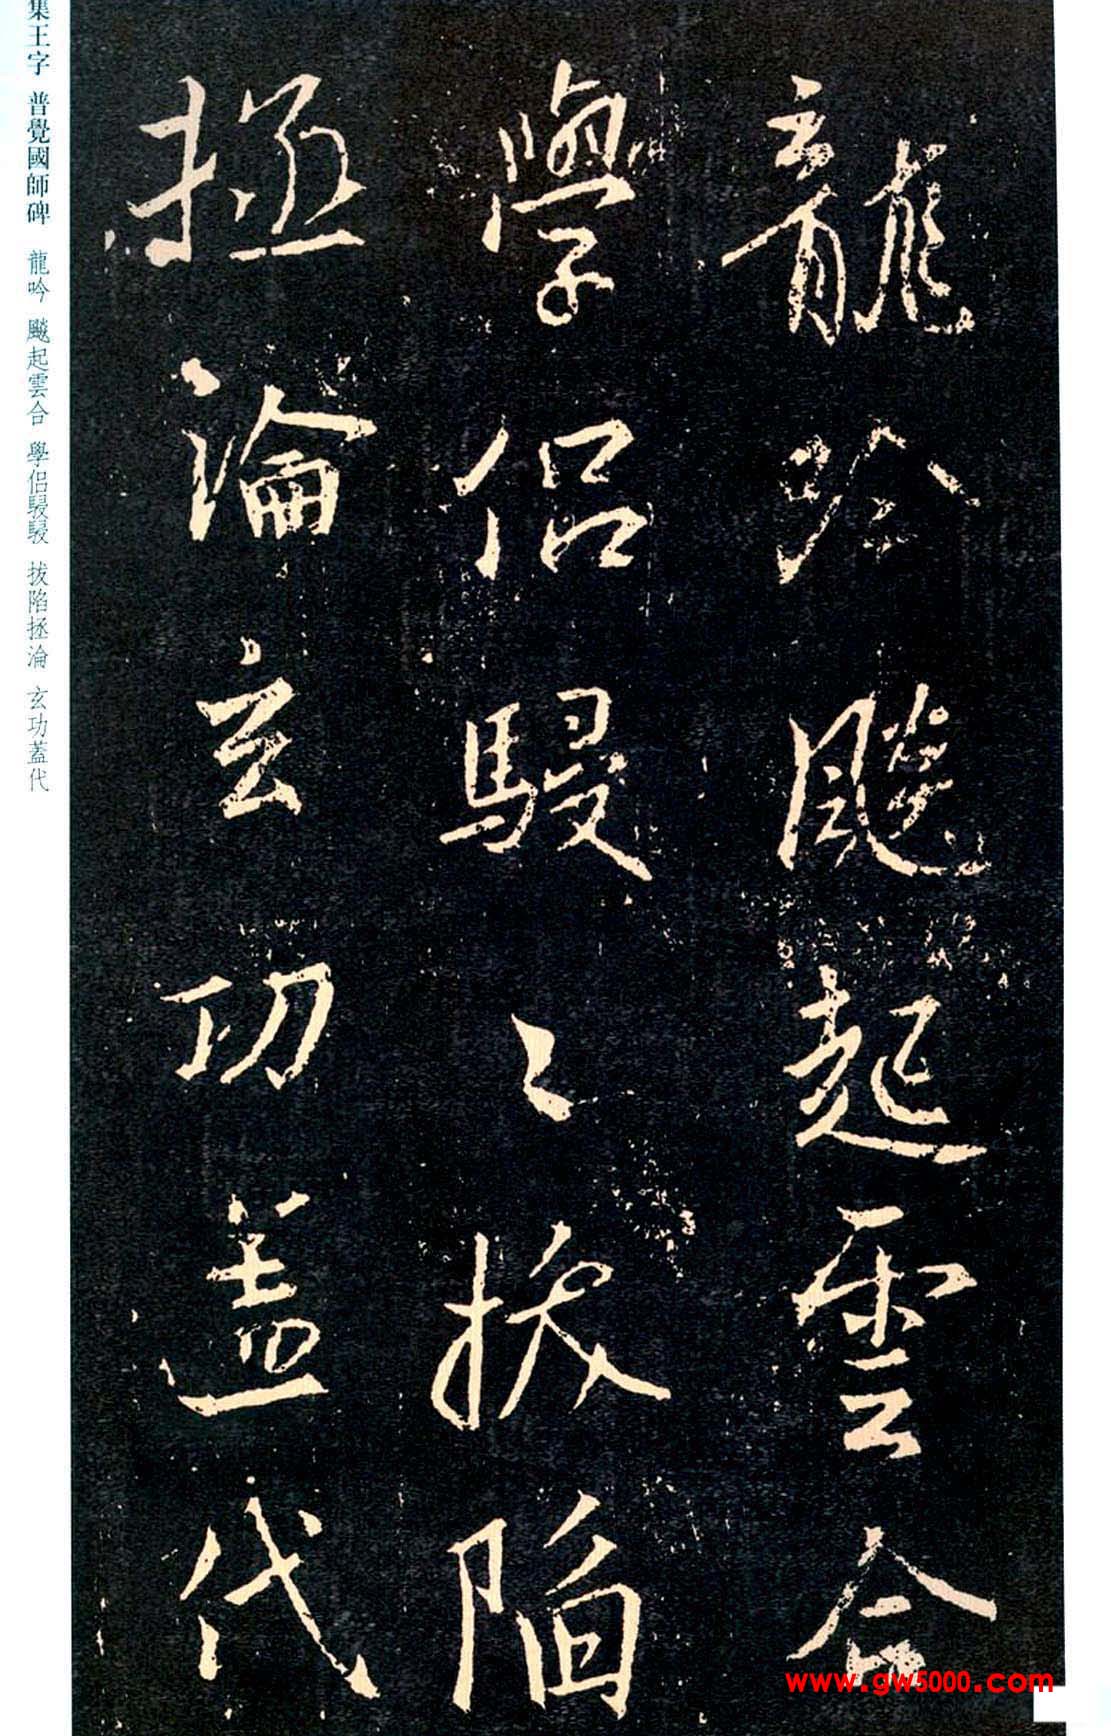 龍吟颷起雲合
學侣駸〻拔陷
拯淪玄功蓋代
集王字 普覺國師碑 龍吟 颷起雲合 學侣駸駸 拔陷拯淪 玄功蓋代
www.gw5000.com